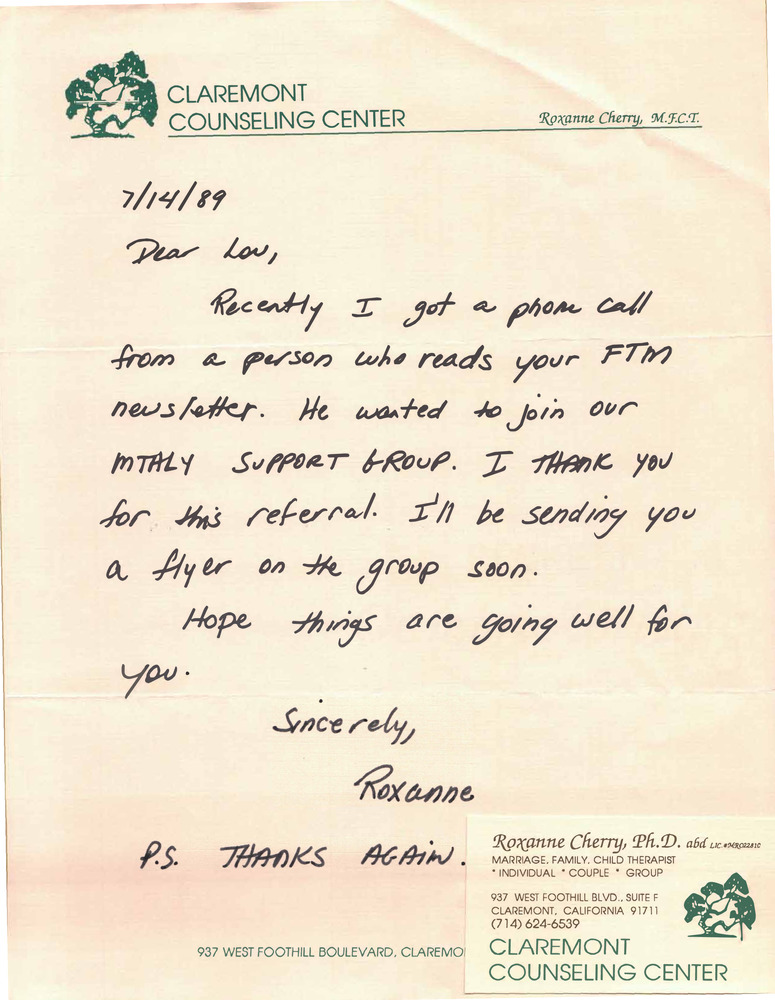 CLAREMONT
COUNSELING CENTER
Roxanne Cherry, M.F.C.T.
7/14/89
Dear Lou,
Recently I got a phone call
from a person who reads your FTM
newsletter. He wanted to join our
MTHLY SUPPORT GROUP. I THANK YOU
for this referral. I'll be sending you
a flyer on the group soon.
Hope things are going well for
you.
Sincerely,
Roxanne
P.S. THANKS AGAIN.
937 WEST FOOTHILL BOULEVARD, CLAREMO
Roxanne Cherry, Ph.D. abd LIC.
MARRIAGE, FAMILY, CHILD THERAPIST
* INDIVIDUAL * COUPLE * GROUP
937 WEST FOOTHILL BLVD., SUITE F
CLAREMONT, CALIFORNIA 91711
(714) 624-6539
CLAREMONT
COUNSELING CENTER